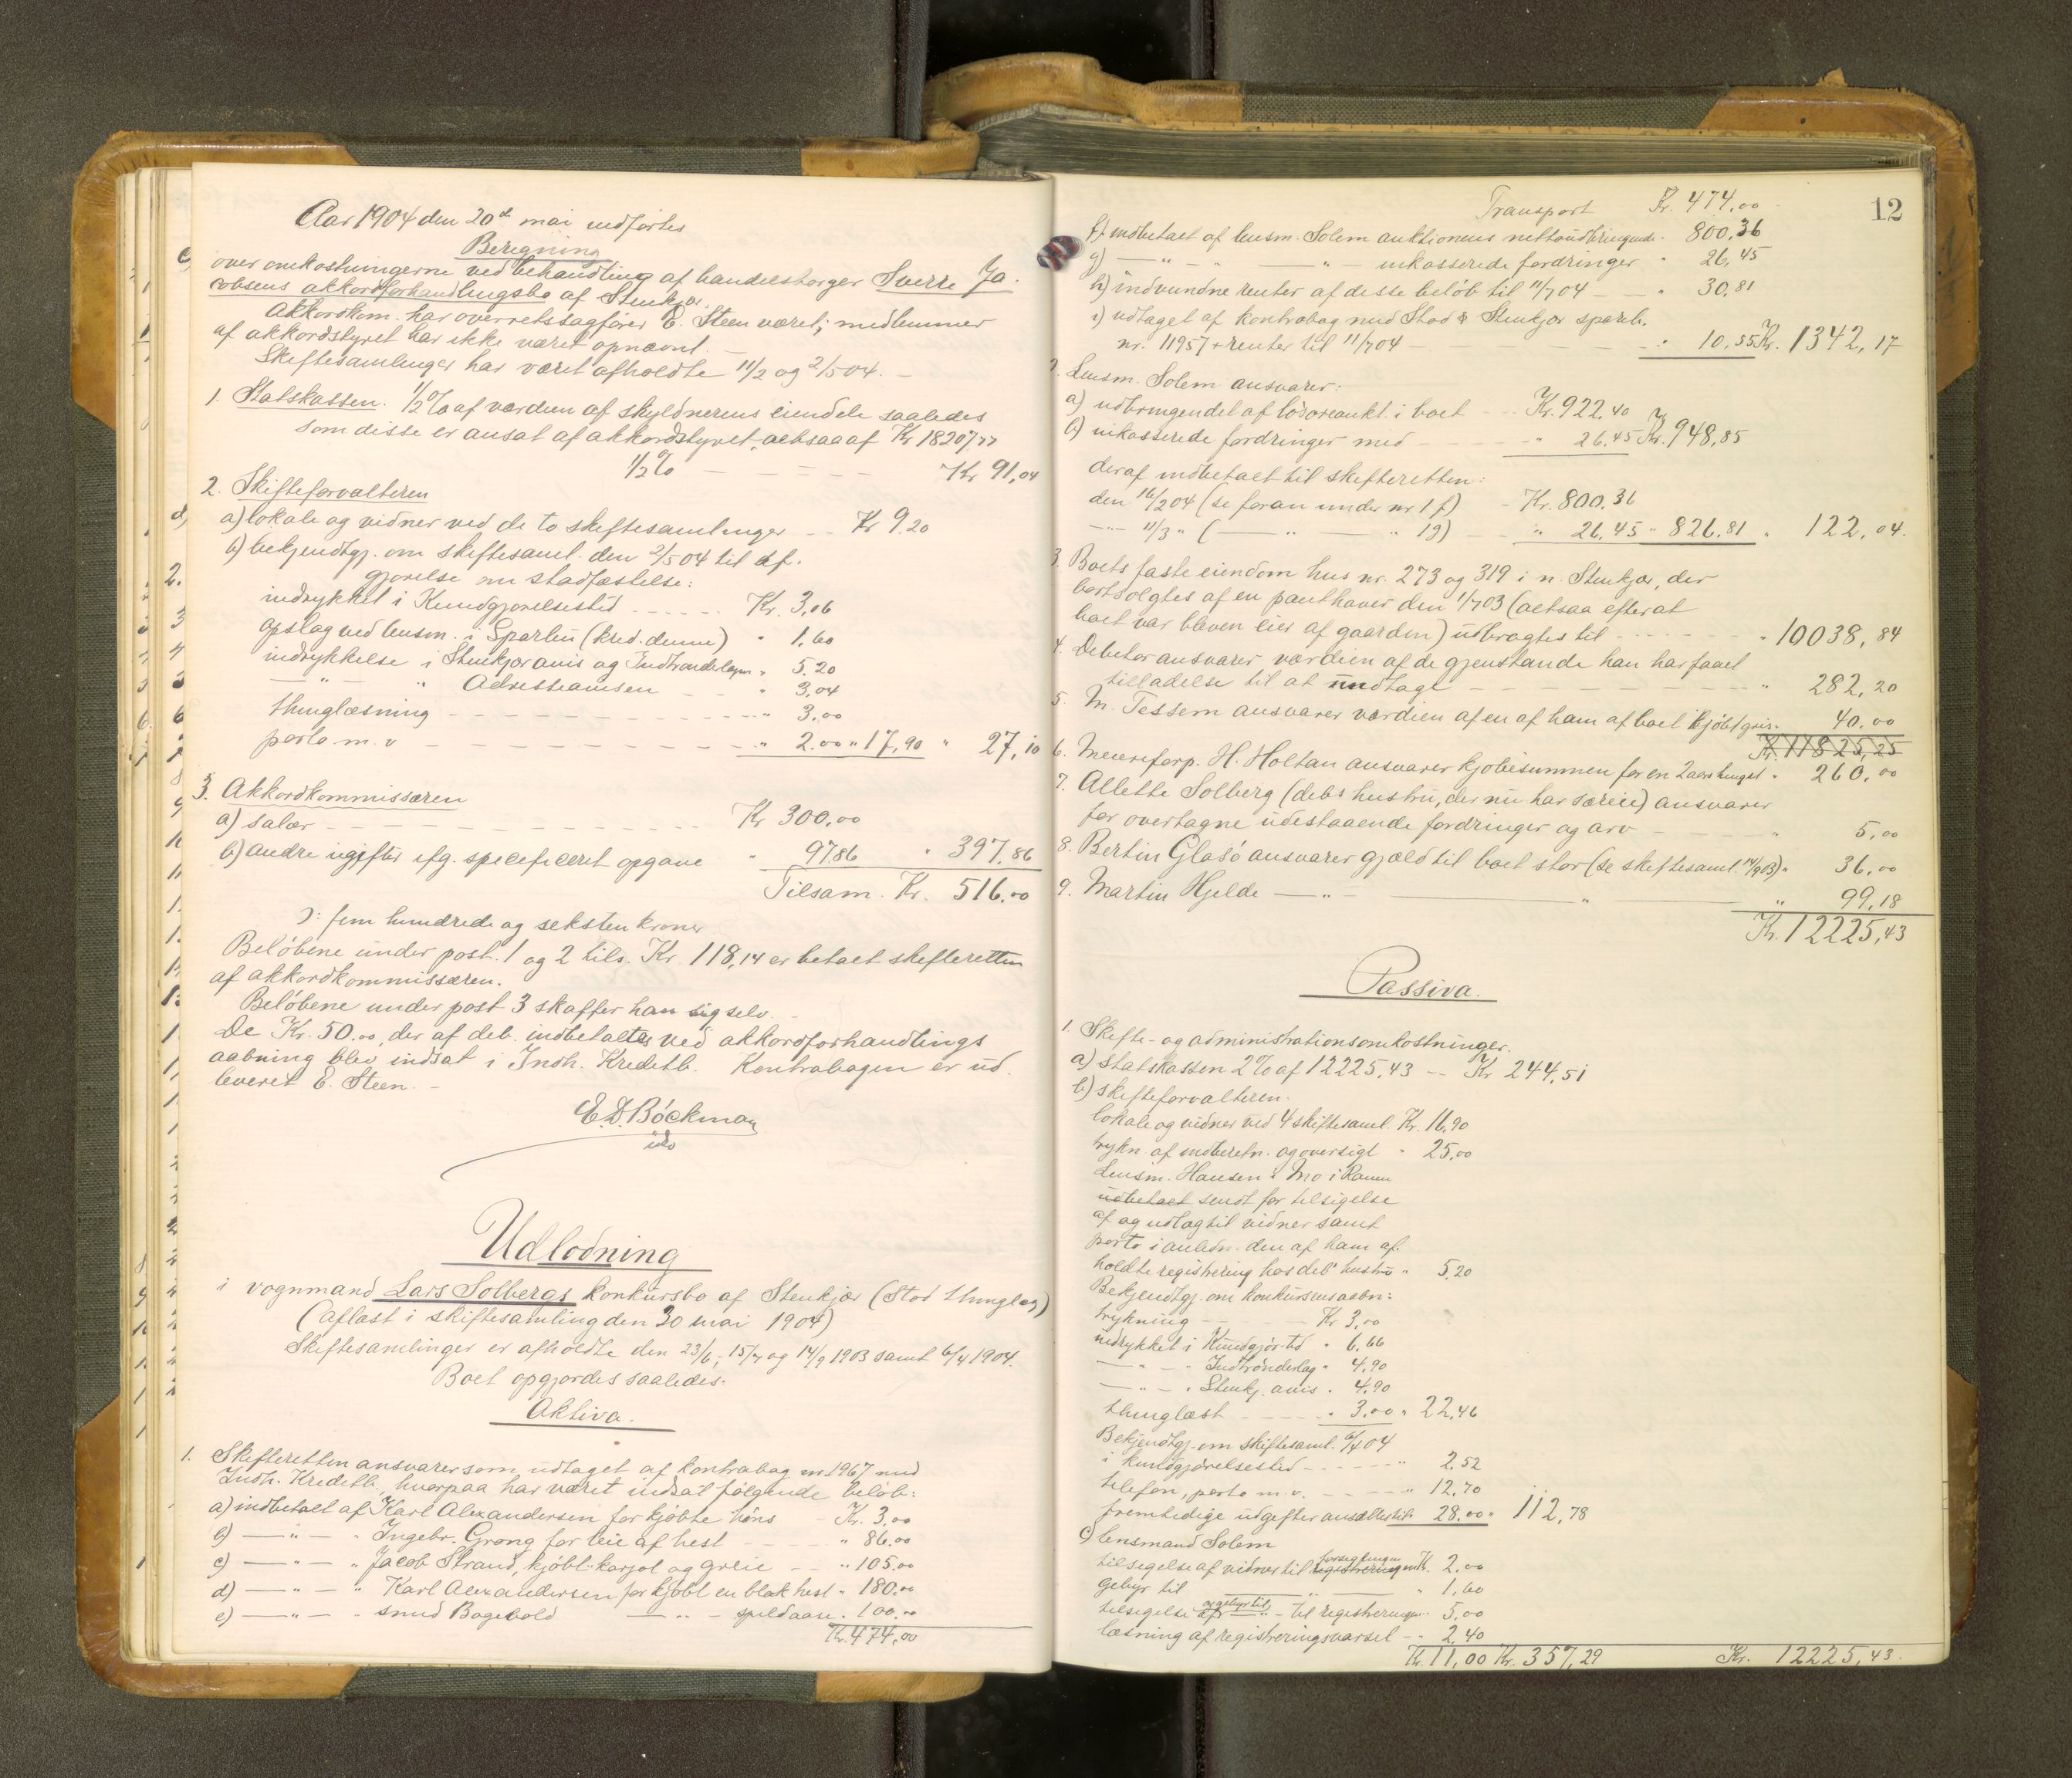 Aar 1904 den 20de mai udførtes
Beregning
over omkostningerne ved behandling af handelsborger Sverre Ja-
cobsens akkordforhandlingsbo af Stenkjær.
Akkordkom. har overretssagfører E. Steen været; medlemmer
af akkordstyret har ikke været opnævnt. —
Skiftesamlinger har været afholdte 11/2 og 2/5 04. —
1. Statskassen. 1/2 % af værdien af skyldnerens eiendele saaledes
som disse er ansat af akkordstyret, altsaa af Kr 18207,
1/2 % — — — — Kr 91,04
2. Skifteforvalteren
a) lokale og vidner ved de to skiftesamlinger — Kr 9.20
b) bekjendtgj. om skiftesaml. den 2/5 04 til af-
gjørelse om stadfæstelse:
indrykket i Kundgjørelsestid ..... Kr. 3,06
opslag ved lensm. i Sparbu (kred. denne) " 1,60
indrykkelse i Stenkjær avis og Indtrøndelagen " 5.20
— " — " Adresseavisen — — " 3,04
thinglæsning — — — — — " 3,00
porto m.v — — — — — " 2.00 " 17,90 " 27,10
3. Akkordkommissæren
a) salær — — — — — Kr 300,00
b) andre ugifter ifg. specificeret opgave " 97.86 " 397,86
Tilsam. Kr. 516,00
ɔ: fem hundrede og seksten kroner
Beløbene under post. 1 og 2 tils. Kr. 118,14 er betalt skifteretten
af akkordkommissæren.
Beløbene under post 3 skaffer han sig selv. —
De Kr. 50,00, der af deb. indbetaltes ved akkordforhandlings
aabning blev indsat i Indh. Kreditb. Kontrabogen er ud-
leveret E. Steen. —
E. D. Bøckman
Udlodning
i vognmand Lars Solbergs konkursbo af Stenkjær (Stod thinglag)
(aflæst i skiftesamling den 20 mai 1904)
Skiftesamlinger er afholdte den 23/6, 15/7 og 14/9 1903 samt 6/4 1904.
Boet opgjordes saaledes:
Aktiva.
1. Skifteretten ansvarer som udtaget af kontrabog nr 1967 med
Indh. Kreditb., hvorpaa har været indsat følgende beløb:
a) indbetalt af Karl Alexandersen for kjøbte høns — Kr. 3,00
b) — " — " Ingebr. Grong for leie af hest — — " 86.00
c) — " — " Jacob Strand, kjøbt karjol og greie — " 105.00
d) — " — " Karl Alexandersen for kjøbt en blak hest " 180.00
e) — " — " smed Bogebold — " — spildaare " 100.00
Kr. 474,00
12
Transport Kr. 474,00
f) indbetalt af lensm. Solem auktionens nettoudbringende " 800,36
g) — " — " — " — inkasserede fordringer " 26,45
h) indvundne renter af disse beløb til 11/7 04 — — " 30,81
i) udtaget af kontrabog med Stod & Stenkjær spareb.
nr. 11957 + renter til 11/7 04 — — — — " 10,55 Kr. 1342,17
2. Lensm. Solem ansvarer:
a) udbringendet af løsøreaukt. i boet — Kr. 922,40
b) inkasserede fordringer med — — — " 26,45 Kr. 948,85
deraf indbetalt til skifteretten:
den 16/2 04 (se foran under nr 1 f) — Kr. 800,36
— " — 11/3 " ( — " — " 1g) — " 26,45 " 826,81 " 122,04.
3. Boets faste eiendom hus nr. 273 og 319 i n. Stenkjær, der
bortsolgtes af en panthaver den 1/7 03 (altsaa efter at
boet var bleven eier af gaarden) udbragtes til — — " 10038,84
4. Debitor ansvarer værdien af de gjenstande han har faaet
tilladelse til at undtage — — — — " 282,20
5. M. Tessem ansvarer værdien af en af ham af boet kjøbt gris " 40,00
Kr. 11825,25
6. Meieriforp. H. Holtan ansvarer kjøbesummen for en 2aars hingst " 260,00
7. Allette Solberg (debs hustru, der nu har særeie) ansvarer
for overtagne udestaaende fordringer og arv — " 5,00
8. Bertin Glasø ansvarer gjæld til boet stor (se skiftesaml. 14/9 03) " 36,00
9. Martin Hjelde — " — " — " 99,18
Kr. 12225,43
Passiva.
1. Skifte- og administrationsomkostninger.
a) Statskassen 2 % af 12225,43 — Kr 244,51
b) Skifteforvalteren.
lokale og vidner ved 4 skiftesaml. Kr. 16,90
trykn. af indberetn. og oversigt " 25,00
Lensm. Hansen i Mo i Ranen
udbetalt sendt for tilsigelse
af og udlæg til vidner samt
porto i anledn. den af ham af-
holdte registrering hos deb's hustru " 5,20
Bekjendtgj. om konkursens aabn:
trykning — — Kr 3,00
indrykket i Kundgjør. tid " 6,66
— " — " Indtrønderlag " 4,90
— " — " Stenkj. avis " 4,90
thinglæst — — " 3,00 " 22,46
Bekjendtgj. om skiftesaml. 6/4 04
i kundgjørelsestid — — " 2,52
telefon, porto m.v. — — " 12,70
fremtidige udgifter ansættes til " 28.00 " 112,78
c) lensmand Solem
tilsigelse af vidner til registreringen forseglingen Kr. 2,00
gebyr til — " — " 1,60
tilsigelse af og gebyr til — " — til registreringen " 5,00
læsning af registreringsvarsel — " 2,40
Kr. 11,00 Kr. 357,29 Kr. 12225,43.